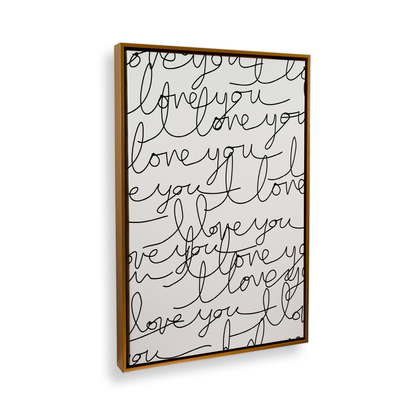 love you I lo
I love you
I love you
love you I
e you I love
I love you
ove you I love yo
u I love yo
love you I lo
you I lo